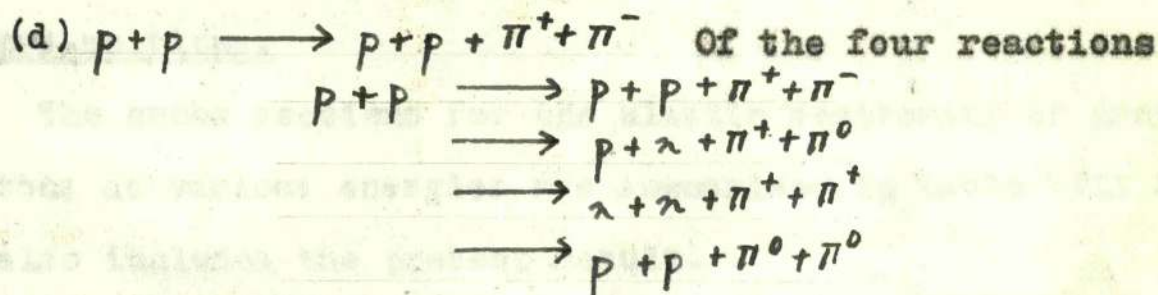 (d) p + p ⟶ p + p + π⁺ + π⁻ Of the four reactions
p + p ⟶ p + p + π⁺ + π⁻
⟶ p + n + π⁺ + π⁰
⟶ n + n + π⁺ + π⁺
⟶ p + p + π⁰ + π⁰